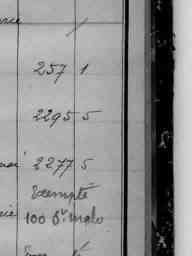 257 1
2295 5
2277 5
Exempté
100 St malo